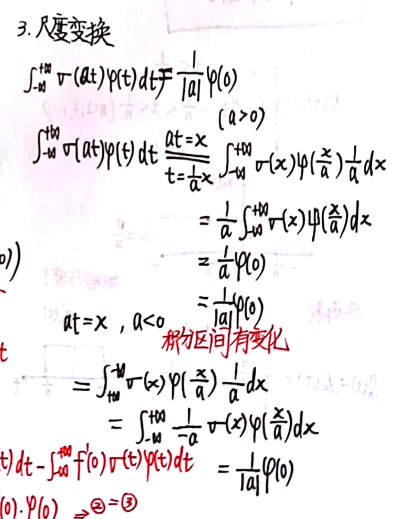 3. 尺度变换
∫_{-∞}^{+∞} σ(at)φ(t)dt = 1/|a| φ(0)
(a>0)
∫_{-∞}^{+∞} σ(at)φ(t)dt \xlongequal[t=1/a x]{at=x} ∫_{-∞}^{+∞} σ(x)φ(x/a) 1/a dx
= 1/a ∫_{-∞}^{+∞} σ(x)φ(x/a)dx
= 1/a φ(0)
0))
= 1/|a| φ(0)
at=x , a<0
积分区间有变化
t
= ∫_{+∞}^{-∞} σ(x)φ(x/a) 1/a dx
= ∫_{-∞}^{+∞} 1/-a σ(x)φ(x/a)dx
t)dt - ∫_{-∞}^{+∞} f'(0)σ(t)φ(t)dt
= 1/|a| φ(0)
(0)·φ(0) ⇒ ②=③